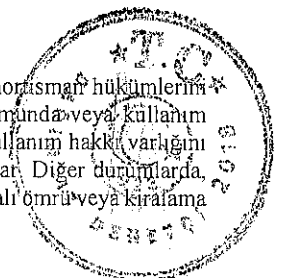 T.C.
amortisman hükümlerini
durumunda veya kullanım
kullanım hakkı varlığını
ar. Diğer durumlarda,
alı ömrü veya kiralama